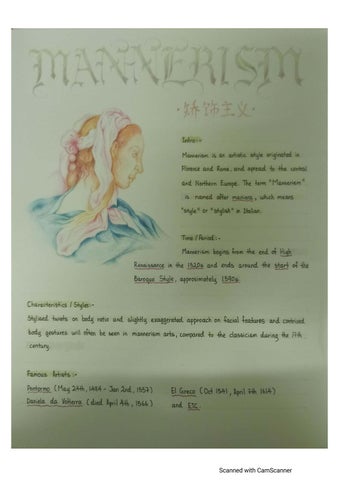 MANNERISM
·娇饰主义·
Intro:-
Mannerism is an artistic style originated in
Florence and Rome, and spread to the central
and Northern Europe. The term "Mannerism"
is named after maniera, which means
"style" or "stylish" in Italian.
Time / Period:-
Mannerism begins from the end of High
Renaissance in the 1520s and ends around the start of the
Baroque Style, approximately 1590s.
Charateristics / Styles:-
Stylised twists on body ratio and slightly exaggerated approach on facial features and contrived
body gestures will often be seen in mannerism arts, compared to the classicism during the 17th
century.
Famous Artists:-
Pontormo (May 24th, 1494 - Jan 2nd, 1557)
El Greco (Oct 1541, April 7th 1614)
Daniele da Volterra (died April 4th, 1566)
and ETC.
Scanned with CamScanner